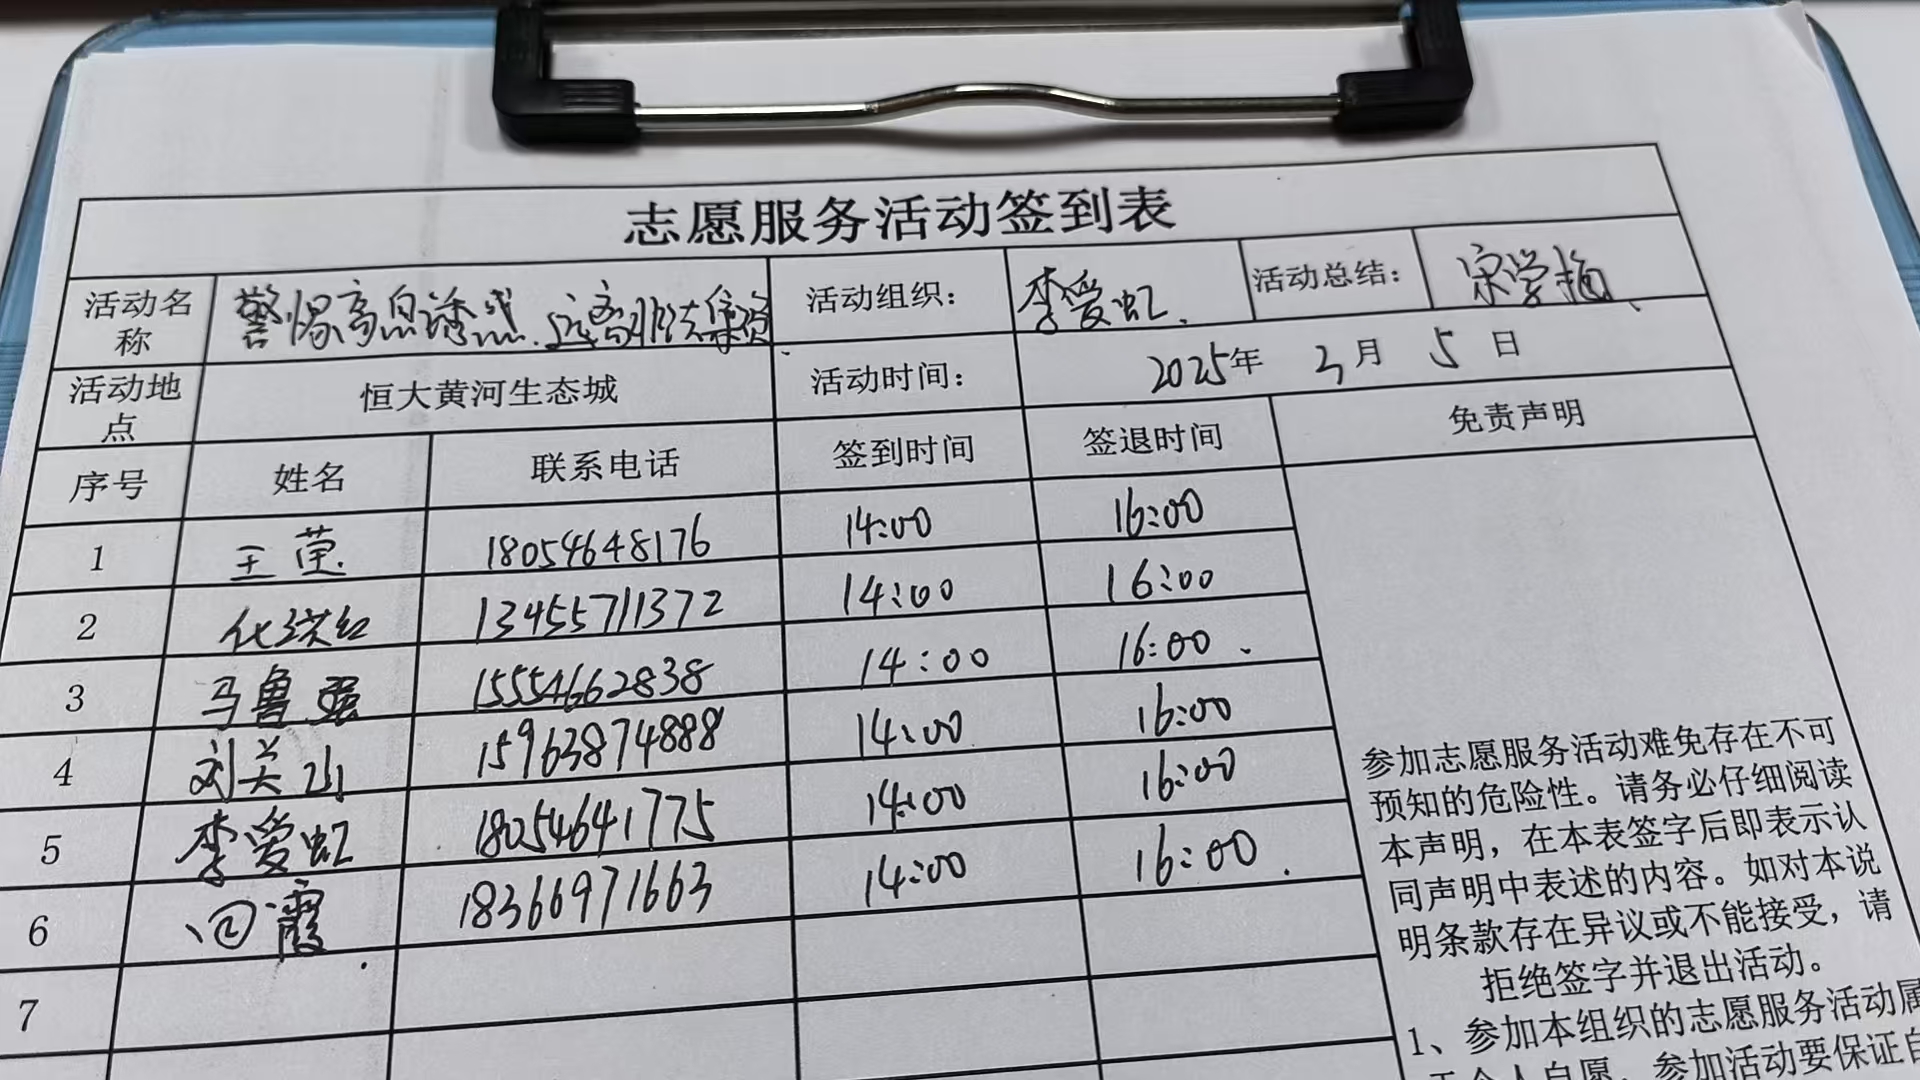 志愿服务活动签到表
活动名称 警惕高息诱惑.远离非法集资 活动组织： 李爱虹 活动总结： 宋学梅
活动地点 恒大黄河生态城 活动时间： 2025年 3月 5日
序号 姓名 联系电话 签到时间 签退时间 免责声明
1 王莹 18054648176 14:00 16:00
2 化 红 13455711372 14:00 16:00
3 马鲁强 15554662838 14:00 16:00
4 刘关山 15963874888 14:00 16:00
5 李爱虹 18054641775 14:00 16:00
6 霞 18366971663 14:00 16:00
7
参加志愿服务活动难免存在不可
预知的危险性。请务必仔细阅读
本声明，在本表签字后即表示认
同声明中表述的内容。如对本说
明条款存在异议或不能接受，请
拒绝签字并退出活动。
1、参加本组织的志愿服务活动属
于个人自愿，参加活动要保证自